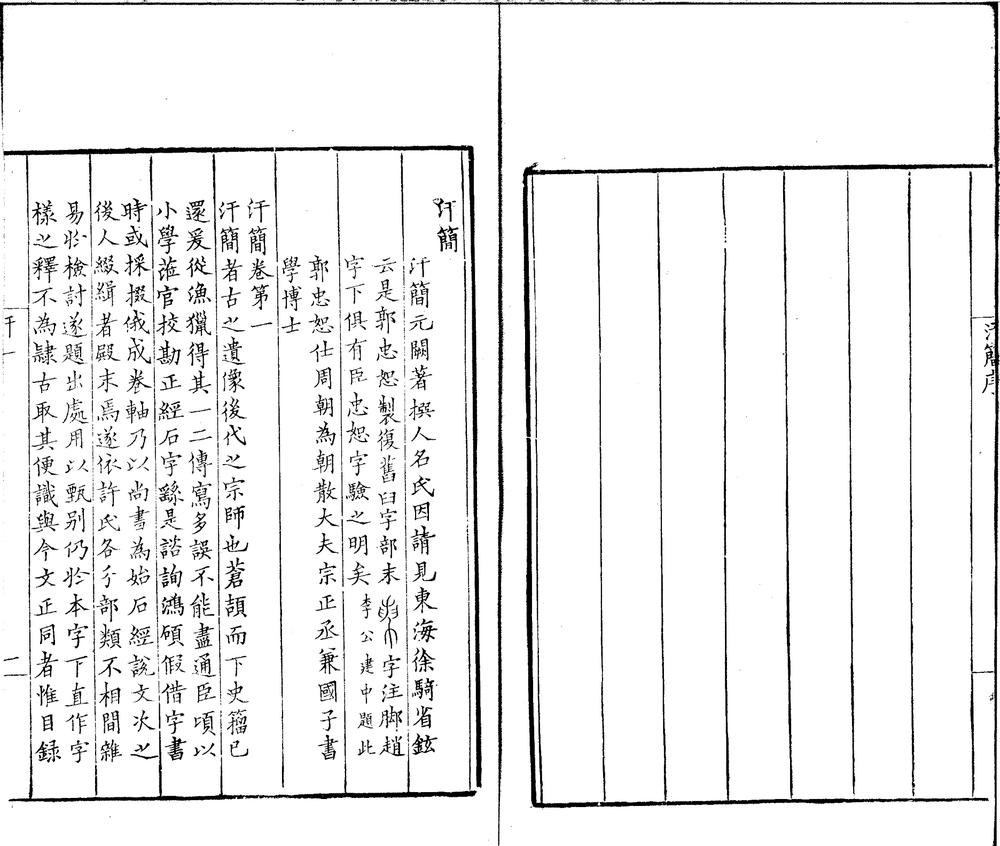 汗簡序
汗簡
汗簡元闕著撰人名氏因請見東海徐騎省鉉
云是郭忠恕製復舊臼字部末字注脚趙
字下俱有臣忠恕字驗之明矣李公建中題此
郭忠恕仕周朝為朝散大夫宗正丞兼國子書
學博士
汗簡卷第一
汗簡者古之遺像後代之宗師也蒼頡而下史籀已
還爰從漁獵得其一二傳寫多誤不能盡通臣頃以
小學蒞官挍勘正經石字繇是諮詢鴻碩假借字書
時或採掇俄成卷軸乃以尚書為始石經說文次之
後人綴緝者殿末焉遂依許氏各分部類不相間雜
易於檢討遂題出處用以甄别仍於本字下直作字
樣之釋不為隸古取其便識與今文正同者惟目録
汗一
二